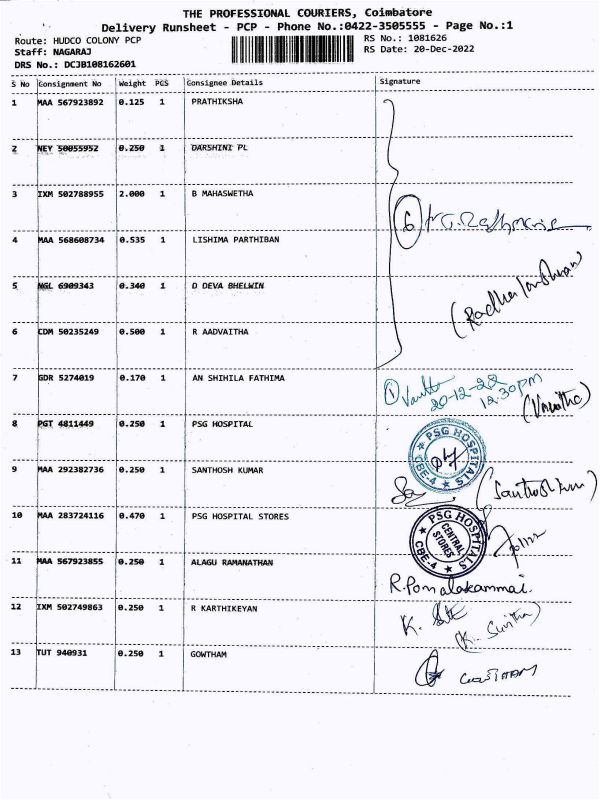 THE PROFESSIONAL COURIERS, Coimbatore
Delivery Runsheet - PCP - Phone No.:0422-3505555 - Page No.:1
Route: HUDCO COLONY PCP
Staff: NAGARAJ
DRS No.: DCJB108162601
RS No.: 1081626
RS Date: 20-Dec-2022
S No Consignment No Weight PCS Consignee Details Signature
1 MAA 567923892 0.125 1 PRATHIKSHA
2 NEY 50055952 0.250 1 DARSHINI PL
3 IXM 502788955 2.000 1 B MAHASWETHA
6
4 MAA 568608734 0.535 1 LISHIMA PARTHIBAN
5 NGL 6909343 0.340 1 D DEVA BHELWIN
6 CDM 50235249 0.500 1 R AADVAITHA
7 GDR 5274019 0.170 1 AN SHIHILA FATHIMA
1 20-12-22 12.30pm
(Vanitha)
8 PGT 4811449 0.250 1 PSG HOSPITAL
PSG HOSPITALS CBE-4
9 MAA 292382736 0.250 1 SANTHOSH KUMAR
10 MAA 283724116 0.470 1 PSG HOSPITAL STORES
PSG HOSPITALS CENTRAL STORES CBE-4
11 MAA 567923855 0.250 1 ALAGU RAMANATHAN
R.Ponalakammai.
12 IXM 502749863 0.250 1 R KARTHIKEYAN
13 TUT 940931 0.250 1 GOWTHAM
GOWTHAM